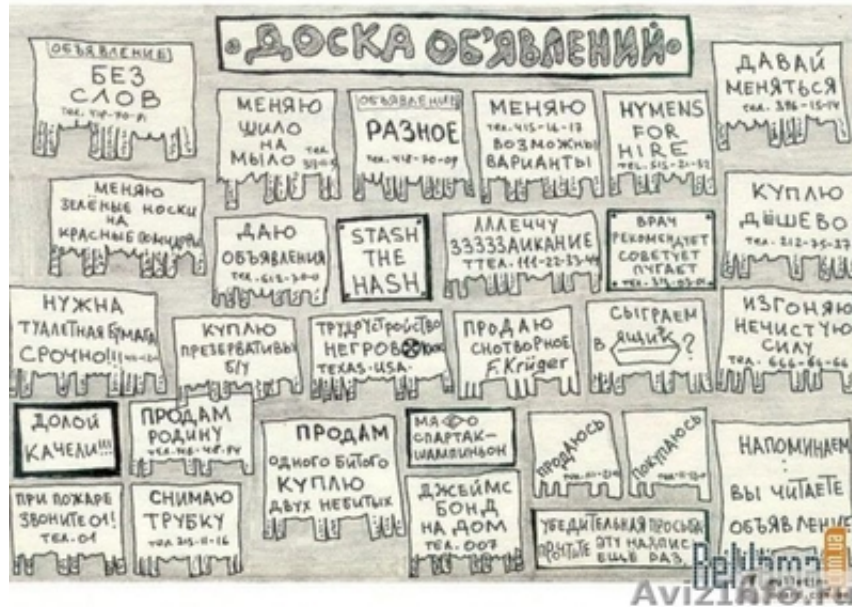 ДОСКА ОБ'ЯВЛЕНИЙ
ОБЪЯВЛЕНИЕ
БЕЗ
СЛОВ
МЕНЯЮ
ШИЛО
НА
МЫЛО
ОБЪЯВЛЕНИЕ
РАЗНОЕ
МЕНЯЮ
тел. 415-16-17
ВОЗМОЖНЫ
ВАРИАНТЫ
HYMENS
FOR
HIRE
ДАВАЙ
МЕНЯТЬСЯ
тел. 386-15-14
МЕНЯЮ
ЗЕЛЁНЫЕ НОСКИ
НА
КРАСНЫЕ ПОМИДОРЫ
ДАЮ
ОБЪЯВЛЕНИЯ
STASH
THE
HASH
ЛЛЛЕЧУ
ЗЗЗЗЗАИКАНИЕ
ТТЕЛ. 111-22-33-44
ВРАЧ
РЕКОМЕНДУЕТ
СОВЕТУЕТ
ПУГАЕТ
КУПЛЮ
ДЁШЕВО
тел. 212-75-37
НУЖНА
ТУАЛЕТНАЯ БУМАГА
СРОЧНО!!!
КУПЛЮ
ПРЕЗЕРВАТИВЫ
Б/У
ТРУДОУСТРОЙСТВО
НЕГРОВ
TEXAS-USA
ПРОДАЮ
СНОТВОРНОЕ
F. Krüger
СЫГРАЕМ
В ЯЩИК?
ИЗГОНЯЮ
НЕЧИСТУЮ
СИЛУ
тел. 666-66-66
ДОЛОЙ
КАЧЕЛИ!!!
ПРОДАМ
РОДИНУ
ПРОДАМ
ОДНОГО БИТОГО
КУПЛЮ
ДВУХ НЕБИТЫХ
СПАРТАК-
ШАМПИНЬОН
ПРОДАЮСЬ
ПОКУПАЮСЬ
НАПОМИНАЕМ
:
ВЫ ЧИТАЕТЕ
ОБЪЯВЛЕНИЕ
ПРИ ПОЖАРЕ
ЗВОНИТЕ 01!
ТЕЛ. 01
СНИМАЮ
ТРУБКУ
тел. 215-11-16
ДЖЕЙМС
БОНД
НА ДОМ
ТЕЛ. 007
УБЕДИТЕЛЬНАЯ ПРОСЬБА
ЭТУ НАДПИС
ЕЩЕ РАЗ.
com.ua